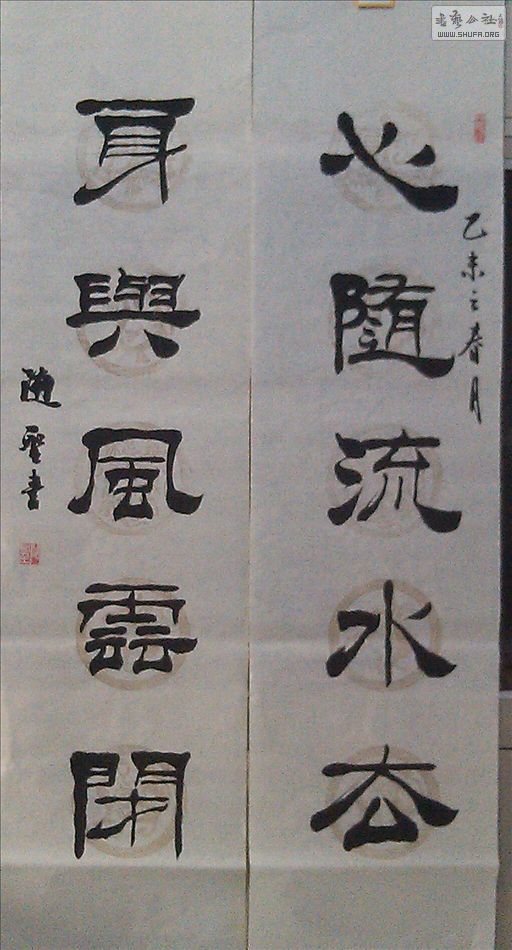 书艺公社
WWW.SHUFA.ORG
乙未之春月
心隨流水去
身與風雲閑
随聖書